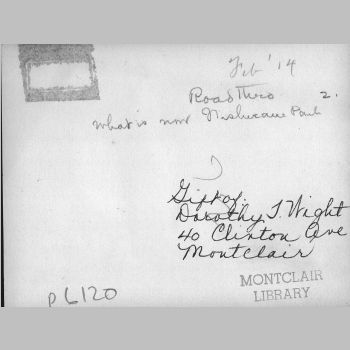 Feb '14
Road Thro 2.
what is now Nishuane Park
Gift of:
Dorothy T. Wight
40 Clinton Ave
Montclair
MONTCLAIR
LIBRARY
p L120